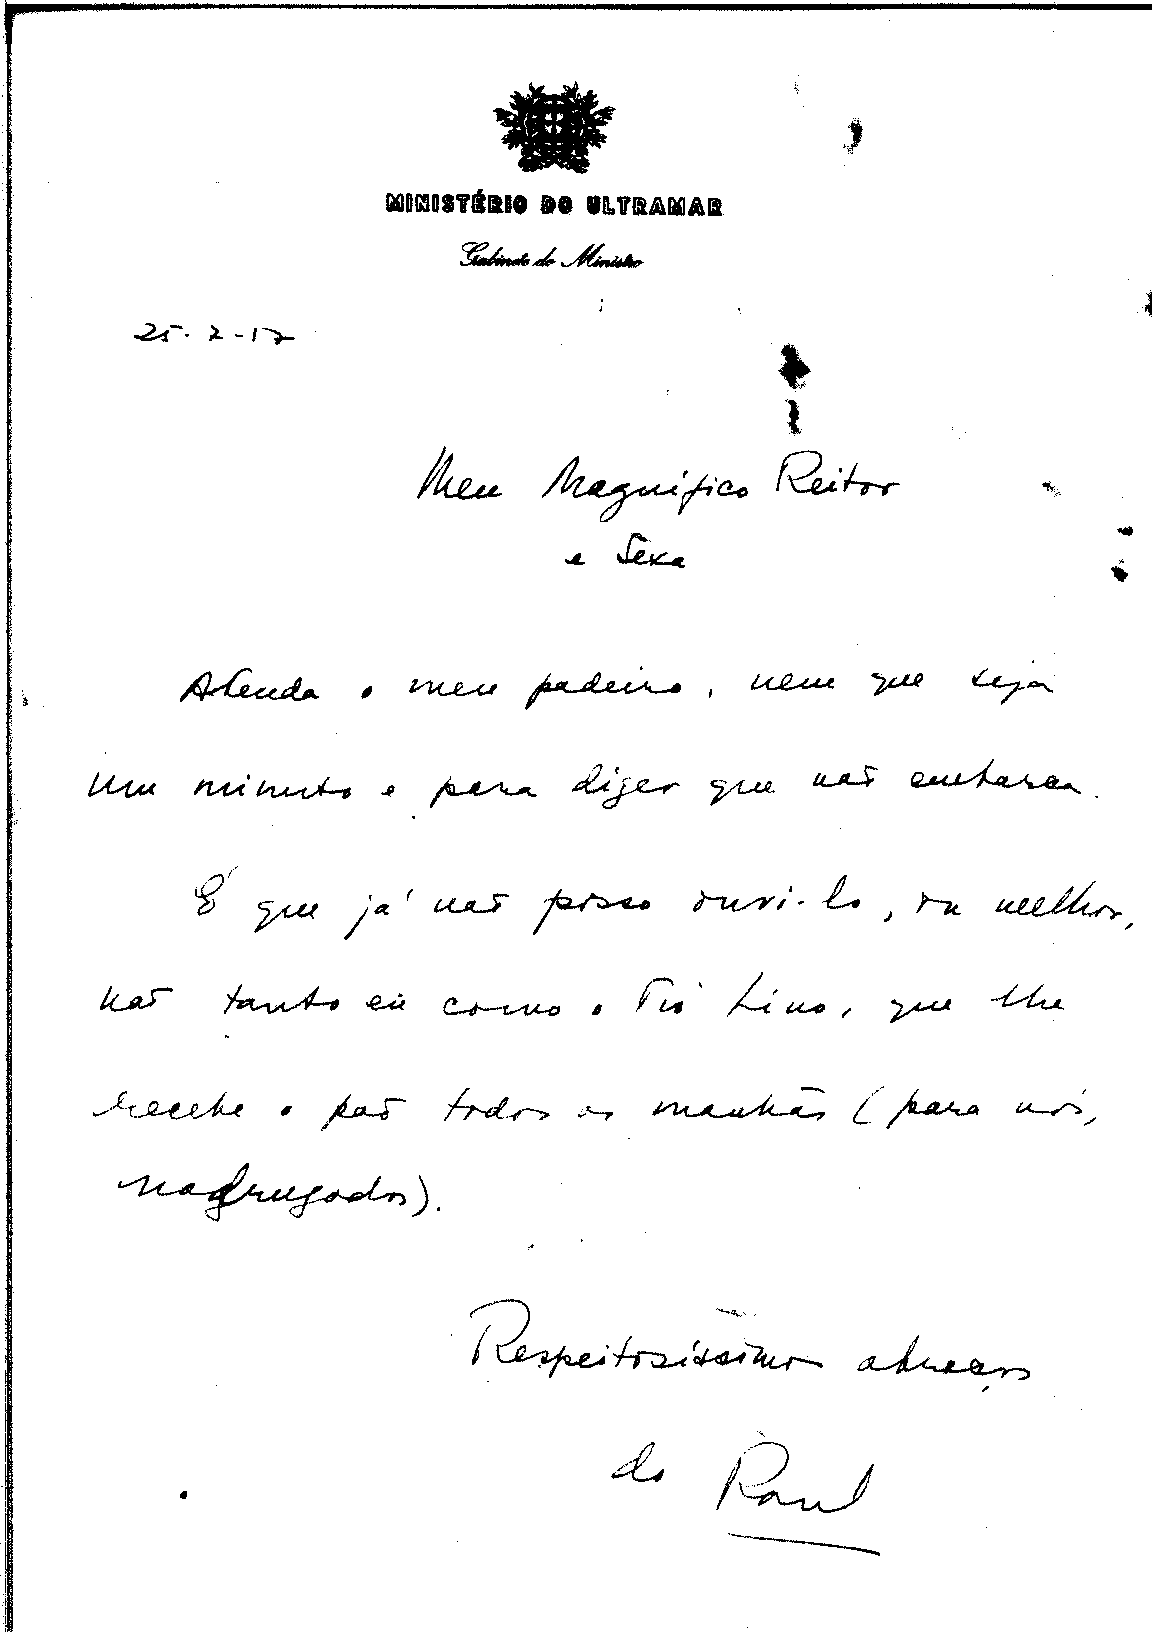 MINISTÉRIO DO ULTRAMAR
Gabinete do Ministro
25-2-17
Meu Magnífico Reitor
e Sexa
Atenda o meu padeiro, nem que seja
um minuto e para dizer que não embarca.
É que já não posso ouvi-lo, ou melhor,
não tanto eu como o Tio Lino, que lhe
recebe o pão todos as manhãs (para nós,
madrugadas).
Respeitosíssimos abraços
do Raul